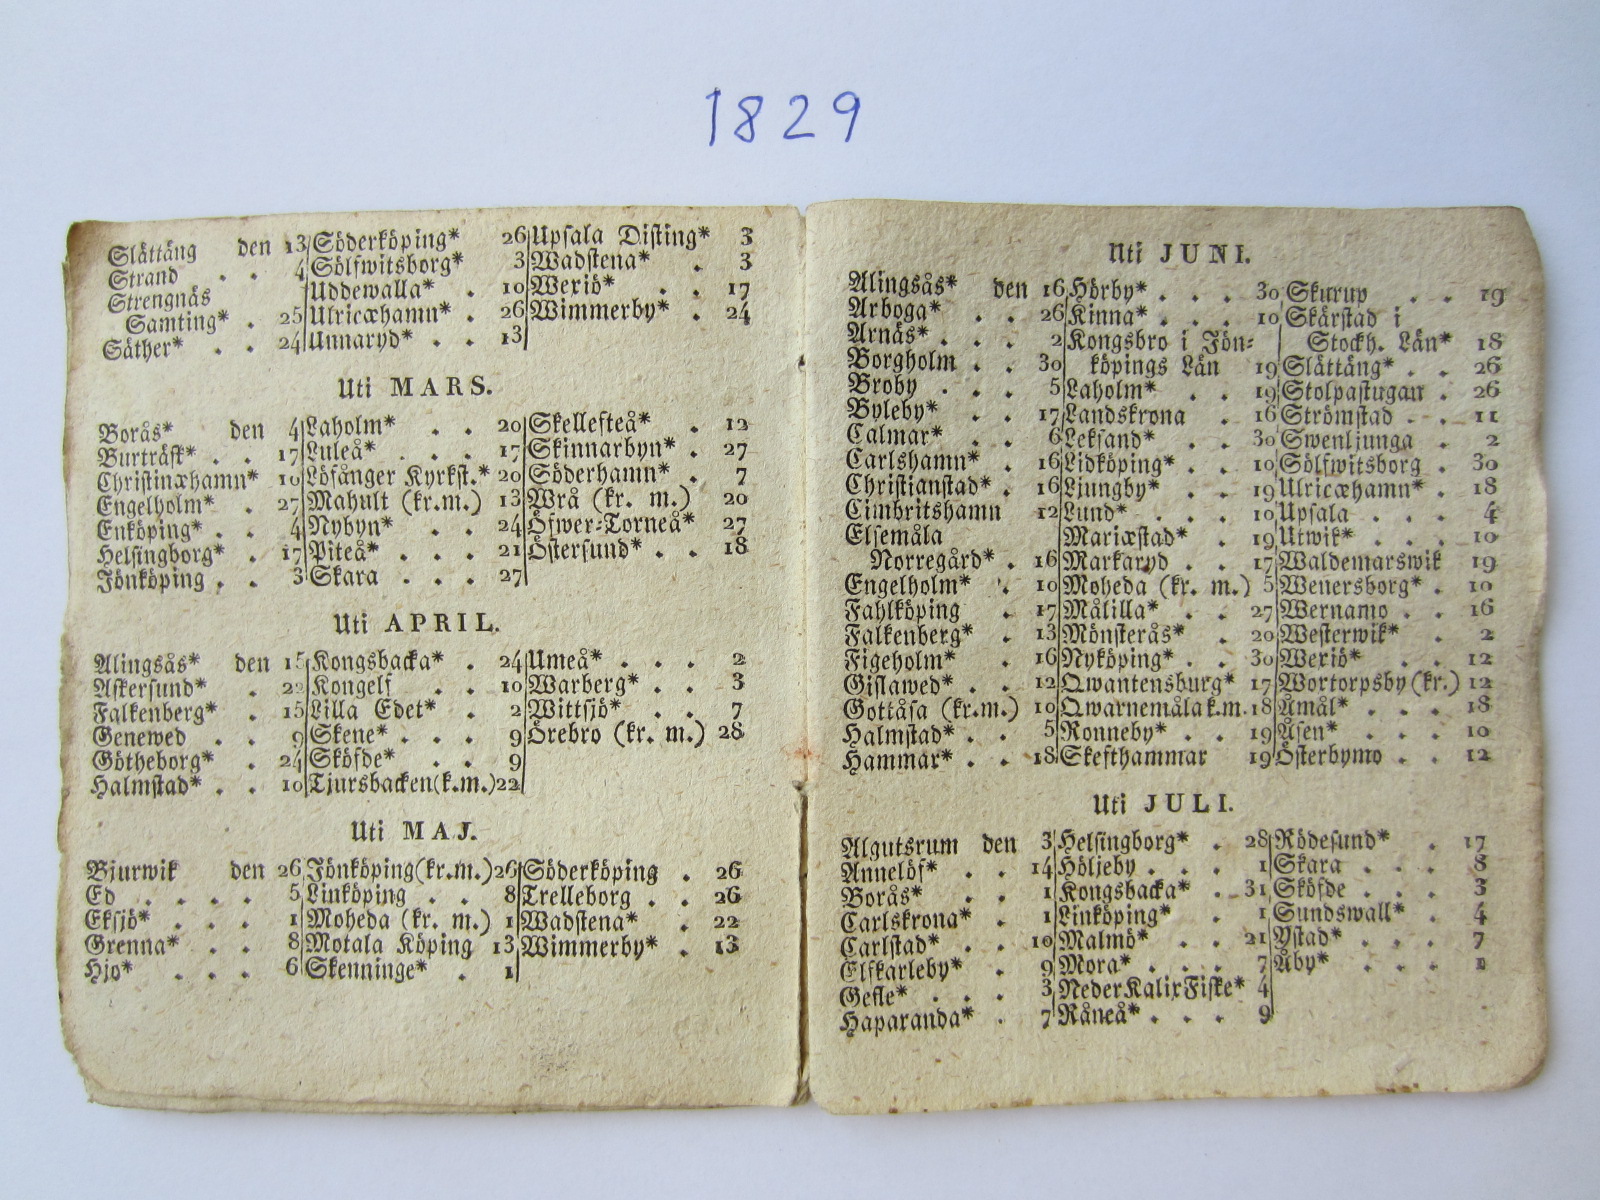 1829
Slättäng den 13
Strand . . 4
Strengnäs
Samting* . 25
Säther* . . 24
Söderköping* 26
Sölfwitsborg* 3
Uddewalla* . 10
Ulricæhamn* . 26
Unnaryd* . . 13
Upsala Disting* 3
Wadstena* . 3
Wexiö* . . 17
Wimmerby* . 24
Uti MARS.
Borås* den 4
Burträsk* . . 17
Christinæhamn* 10
Engelholm* . 27
Enköping* . . 4
Helsingborg* . 17
Jönköping . . 3
Laholm* . . 20
Luleå* . . . 17
Löfånger Kyrkst.* 20
Mahult (kr.m.) 13
Nybyn* . . 24
Piteå* . . . 21
Skara . . . 27
Skellefteå* . 12
Skinnarbyn* . 27
Söderhamn* . 7
Wrå (kr. m.) 20
Öfwer-Torneå* 27
Östersund* . . 18
Uti APRIL.
Alingsås* den 15
Askersund* . 22
Falkenberg* . 15
Genewed . . 9
Götheborg* . 24
Halmstad* . . 10
Kongsbacka* . 24
Kongelf . . 10
Lilla Edet* . 2
Skene* . . . 9
Sköfde* . . 9
Tjursbacken(k.m.) 22
Umeå* . . . 2
Warberg* . . 3
Wittsjö* . . 7
Örebro (kr. m.) 28
Uti MAJ.
Bjurwik den 26
Ed . . . . 5
Eksjö* . . . 1
Grenna* . . 8
Hjo* . . . 6
Jönköping(kr.m.) 26
Linköping . . 8
Moheda (kr. m.) 1
Motala Köping 13
Skenninge* . 1
Söderköping . 26
Trelleborg . . 26
Wadstena* . 22
Wimmerby* . 13
Uti JUNI.
Alingsås* den 16
Arboga* . . 26
Arnäs* . . . 2
Borgholm . . 30
Broby . . . 5
Byleby* . . 17
Calmar* . . 6
Carlshamn* . 16
Christianstad* . 16
Cimbritshamn 12
Elsemåla
Norregård* . 16
Engelholm* . 10
Fahlköping . 17
Falkenberg* . 13
Figeholm* . 16
Gislawed* . . 12
Gottåsa (kr.m.) 10
Halmstad* . . 5
Hammar* . . 18
Hörby* . . . 30
Kinna* . . . 10
Kongsbro i Jön-
köpings Län 19
Laholm* . . 19
Landskrona . 16
Leksand* . . 30
Lidköping* . . 10
Ljungby* . . 19
Lund* . . . 10
Mariæstad* . 19
Markaryd . . 17
Moheda (kr. m.) 5
Målilla* . . 27
Mönsterås* . 20
Nyköping* . . 30
Qwantensburg* 17
Qwarnemåla k.m. 18
Ronneby* . . 19
Skefthammar 19
Skurup . . 19
Skärstad i
Stockh. Län* 18
Slättäng* . . 26
Stolpastugan . 26
Strömstad . . 11
Swenljunga . 2
Sölfwitsborg . 30
Ulricæhamn* . 18
Upsala . . . 4
Utwik* . . . 10
Waldemarswik 19
Wenersborg* . 10
Wernamo . . 16
Westerwik* . 2
Wexiö* . . . 12
Wortorpsby (kr.) 12
Åmål* . . . 18
Åsen* . . . 10
Österbymo . . 12
Uti JULI.
Algutsrum den 3
Annelöf* . . 14
Borås* . . . 1
Carlskrona* . 1
Carlstad* . . 10
Elfkarleby* . 9
Gefle* . . . 3
Haparanda* . 7
Helsingborg* . 28
Höljeby . . . 1
Kongsbacka* . 31
Linköping* . 1
Malmö* . . 21
Mora* . . . 7
Neder Kalix Fiske* 4
Råneå* . . . 9
Rödesund* . 17
Skara . . . 8
Sköfde . . . 3
Sundswall* . 4
Ystad* . . . 7
Åby* . . . 1